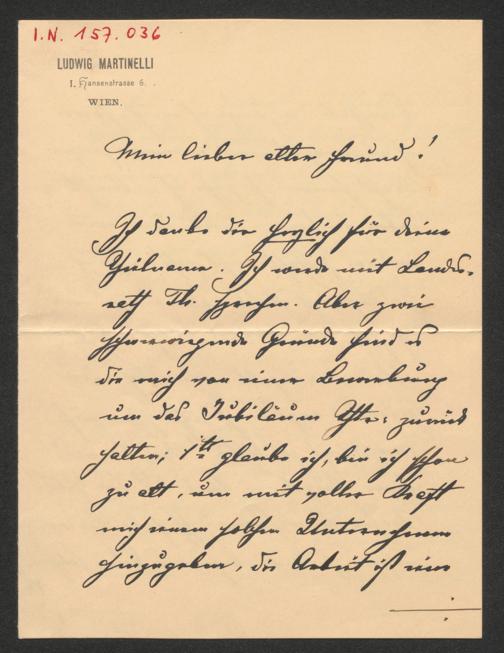 I.N. 157.036
LUDWIG MARTINELLI
I. Hansenstrasse 6.
WIEN.
Mein lieber alter Freund!
Ich danke dir herzlich für deine
Theilname. Ich werde mit Landes-
rath Th. sprechen. Aber zwei
schwerwiegende Gründe sind es
die mich von einer Bewerbung
um das Jubiläum Thtr: zurück
halten; 1tr glaube ich, bin ich schon
zu alt, um mit voller Kraft
mich einem solchen Unternehmen
hinzugeben, die Arbeit ist eine